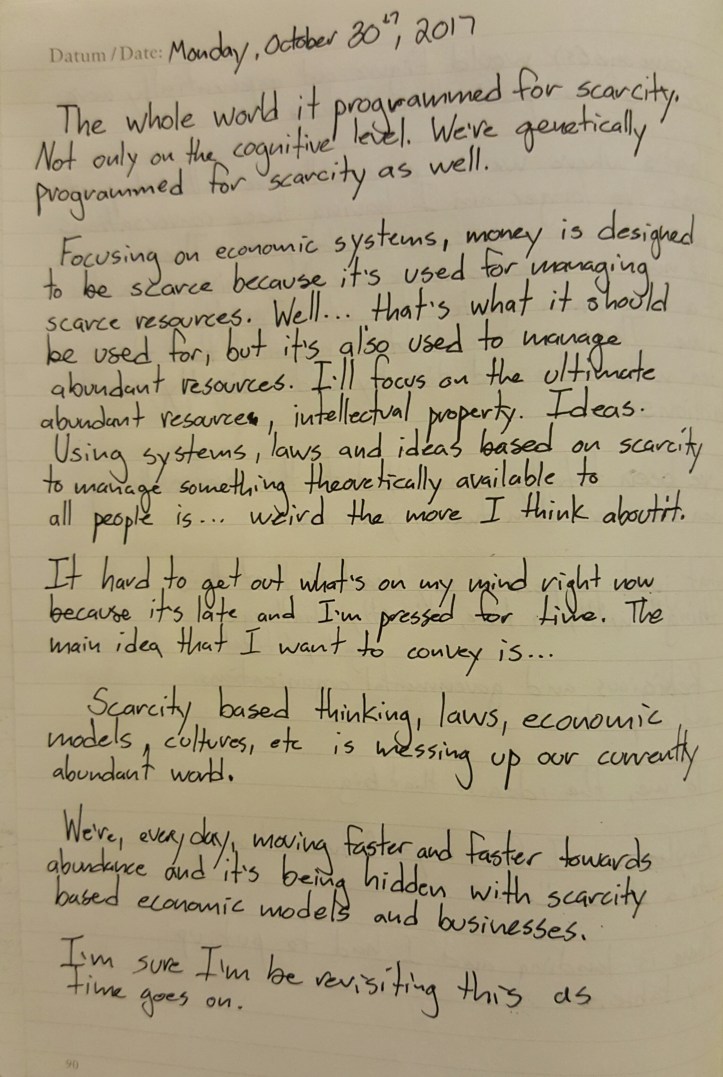 Datum / Date: Monday, October 30th, 2017
The whole world it programmed for scarcity.
Not only on the cognitive level. We're genetically
programmed for scarcity as well.
Focusing on economic systems, money is designed
to be scarce because it's used for managing
scarce resources. Well... that's what it should
be used for, but it's also used to manage
abundant resources. I'll focus on the ultimate
abundant resource, intellectual property. Ideas.
Using systems, laws and ideas based on scarcity
to manage something theoretically available to
all people is... weird the more I think about it.
It hard to get out what's on my mind right now
because it's late and I'm pressed for time. The
main idea that I want to convey is...
Scarcity based thinking, laws, economic
models, cultures, etc is messing up our currently
abundant world.
We're, every day, moving faster and faster towards
abundance and it's being hidden with scarcity
based economic models and businesses.
I'm sure I'm be revisiting this as
time goes on.
90